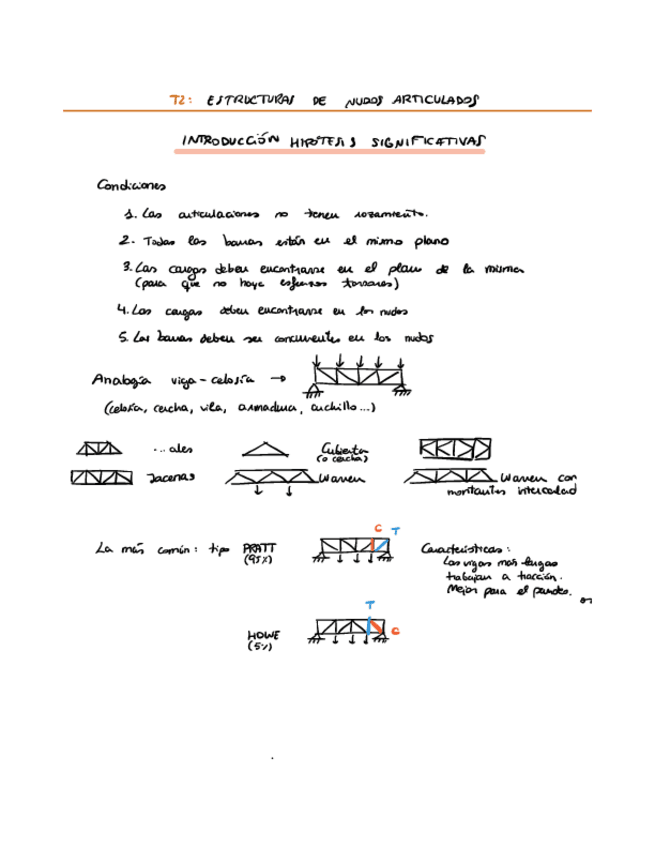 T2: ESTRUCTURAS DE NUDOS ARTICULADOS
INTRODUCCIÓN HIPÓTESIS SIGNIFICATIVAS
Condiciones
1. Las articulaciones no tienen rozamiento.
2. Todas las barras están en el mismo plano
3. Las cargas deben encontrarse en el plano de la misma
(para que no haya esfuerzos torsores)
4. Las cargas deben encontrarse en los nudos
5. Las barras deben ser concurrentes en los nudos
Analogía viga-celosía →
(celosía, cercha, viga, armadura, cuchillo...)
...ales
Cubierta
(o cercha)
Jacenas
Warren
Warren con
montantes intercalad
C T
La más común: tipo PRATT
(95%)
Características:
Las vigas mas largas
trabajan a tracción.
Mejor para el pandeo.
T
HOWE
(5%)
C